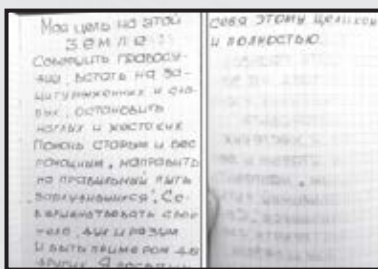 Моя цель на этой
земле
Совершить правосу-
дие, встать на за-
щиту униженных и сла-
бых, остановить
наглых и жестоких
Помочь старым и бес
помощным, направить
на правильный путь
заблудившихся, Со-
вершенствовать свое
тело, дух и разум
и быть примером для
других. Я посвящаю
себя этому целиком
и полностью.